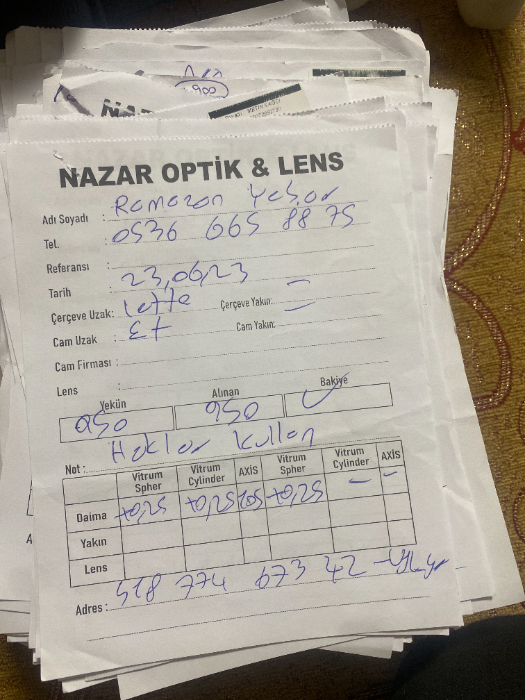 900
NAZAR OPTİK & LENS
Adı Soyadı : Ramazan Yaşar
Tel. : 0536 665 88 75
Referansı :
Tarih : 23,06,23
Çerçeve Uzak: Çerçeve Yakın: —
Cam Uzak : Cam Yakın: —
Cam Firması :
Lens :
Yekün Alınan Bakiye
950 950 ✓
Not :
Vitrum Spher Vitrum Cylinder AXİS Vitrum Spher Vitrum Cylinder AXİS
Daima +0,25 +0,25 105 +0,25 — —
Yakın
Lens
Adres : 518 774 673 42